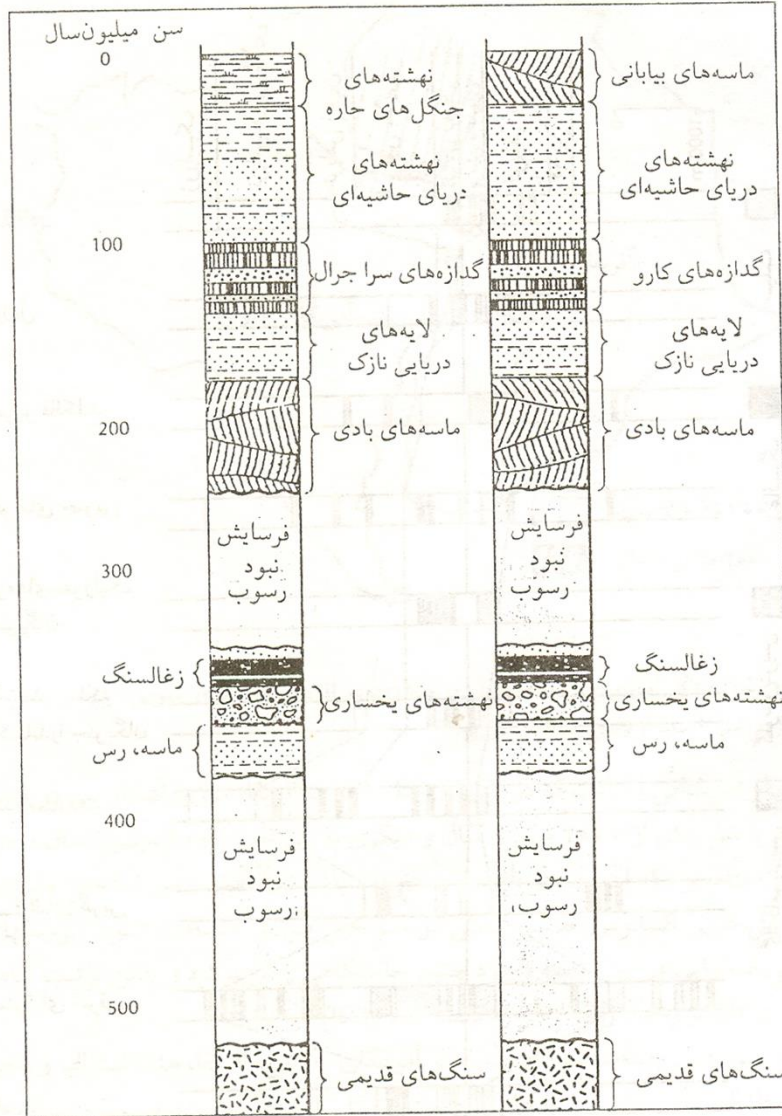 سن میلیون‌سال
0
100
200
300
400
500
نهشته‌های
جنگل‌های حاره
نهشته‌های
دریای حاشیه‌ای
گدازه‌های سرا جرال
لایه‌های
دریایی نازک
ماسه‌های بادی
فرسایش
نبود
رسوب
زغالسنگ
نهشته‌های یخساری
ماسه، رس
فرسایش
نبود
رسوب
سنگ‌های قدیمی
ماسه‌های بیابانی
نهشته‌های
دریای حاشیه‌ای
گدازه‌های کارو
لایه‌های
دریایی نازک
ماسه‌های بادی
فرسایش
نبود
رسوب
زغالسنگ
نهشته‌های یخساری
ماسه، رس
فرسایش
نبود
رسوب
سنگ‌های قدیمی